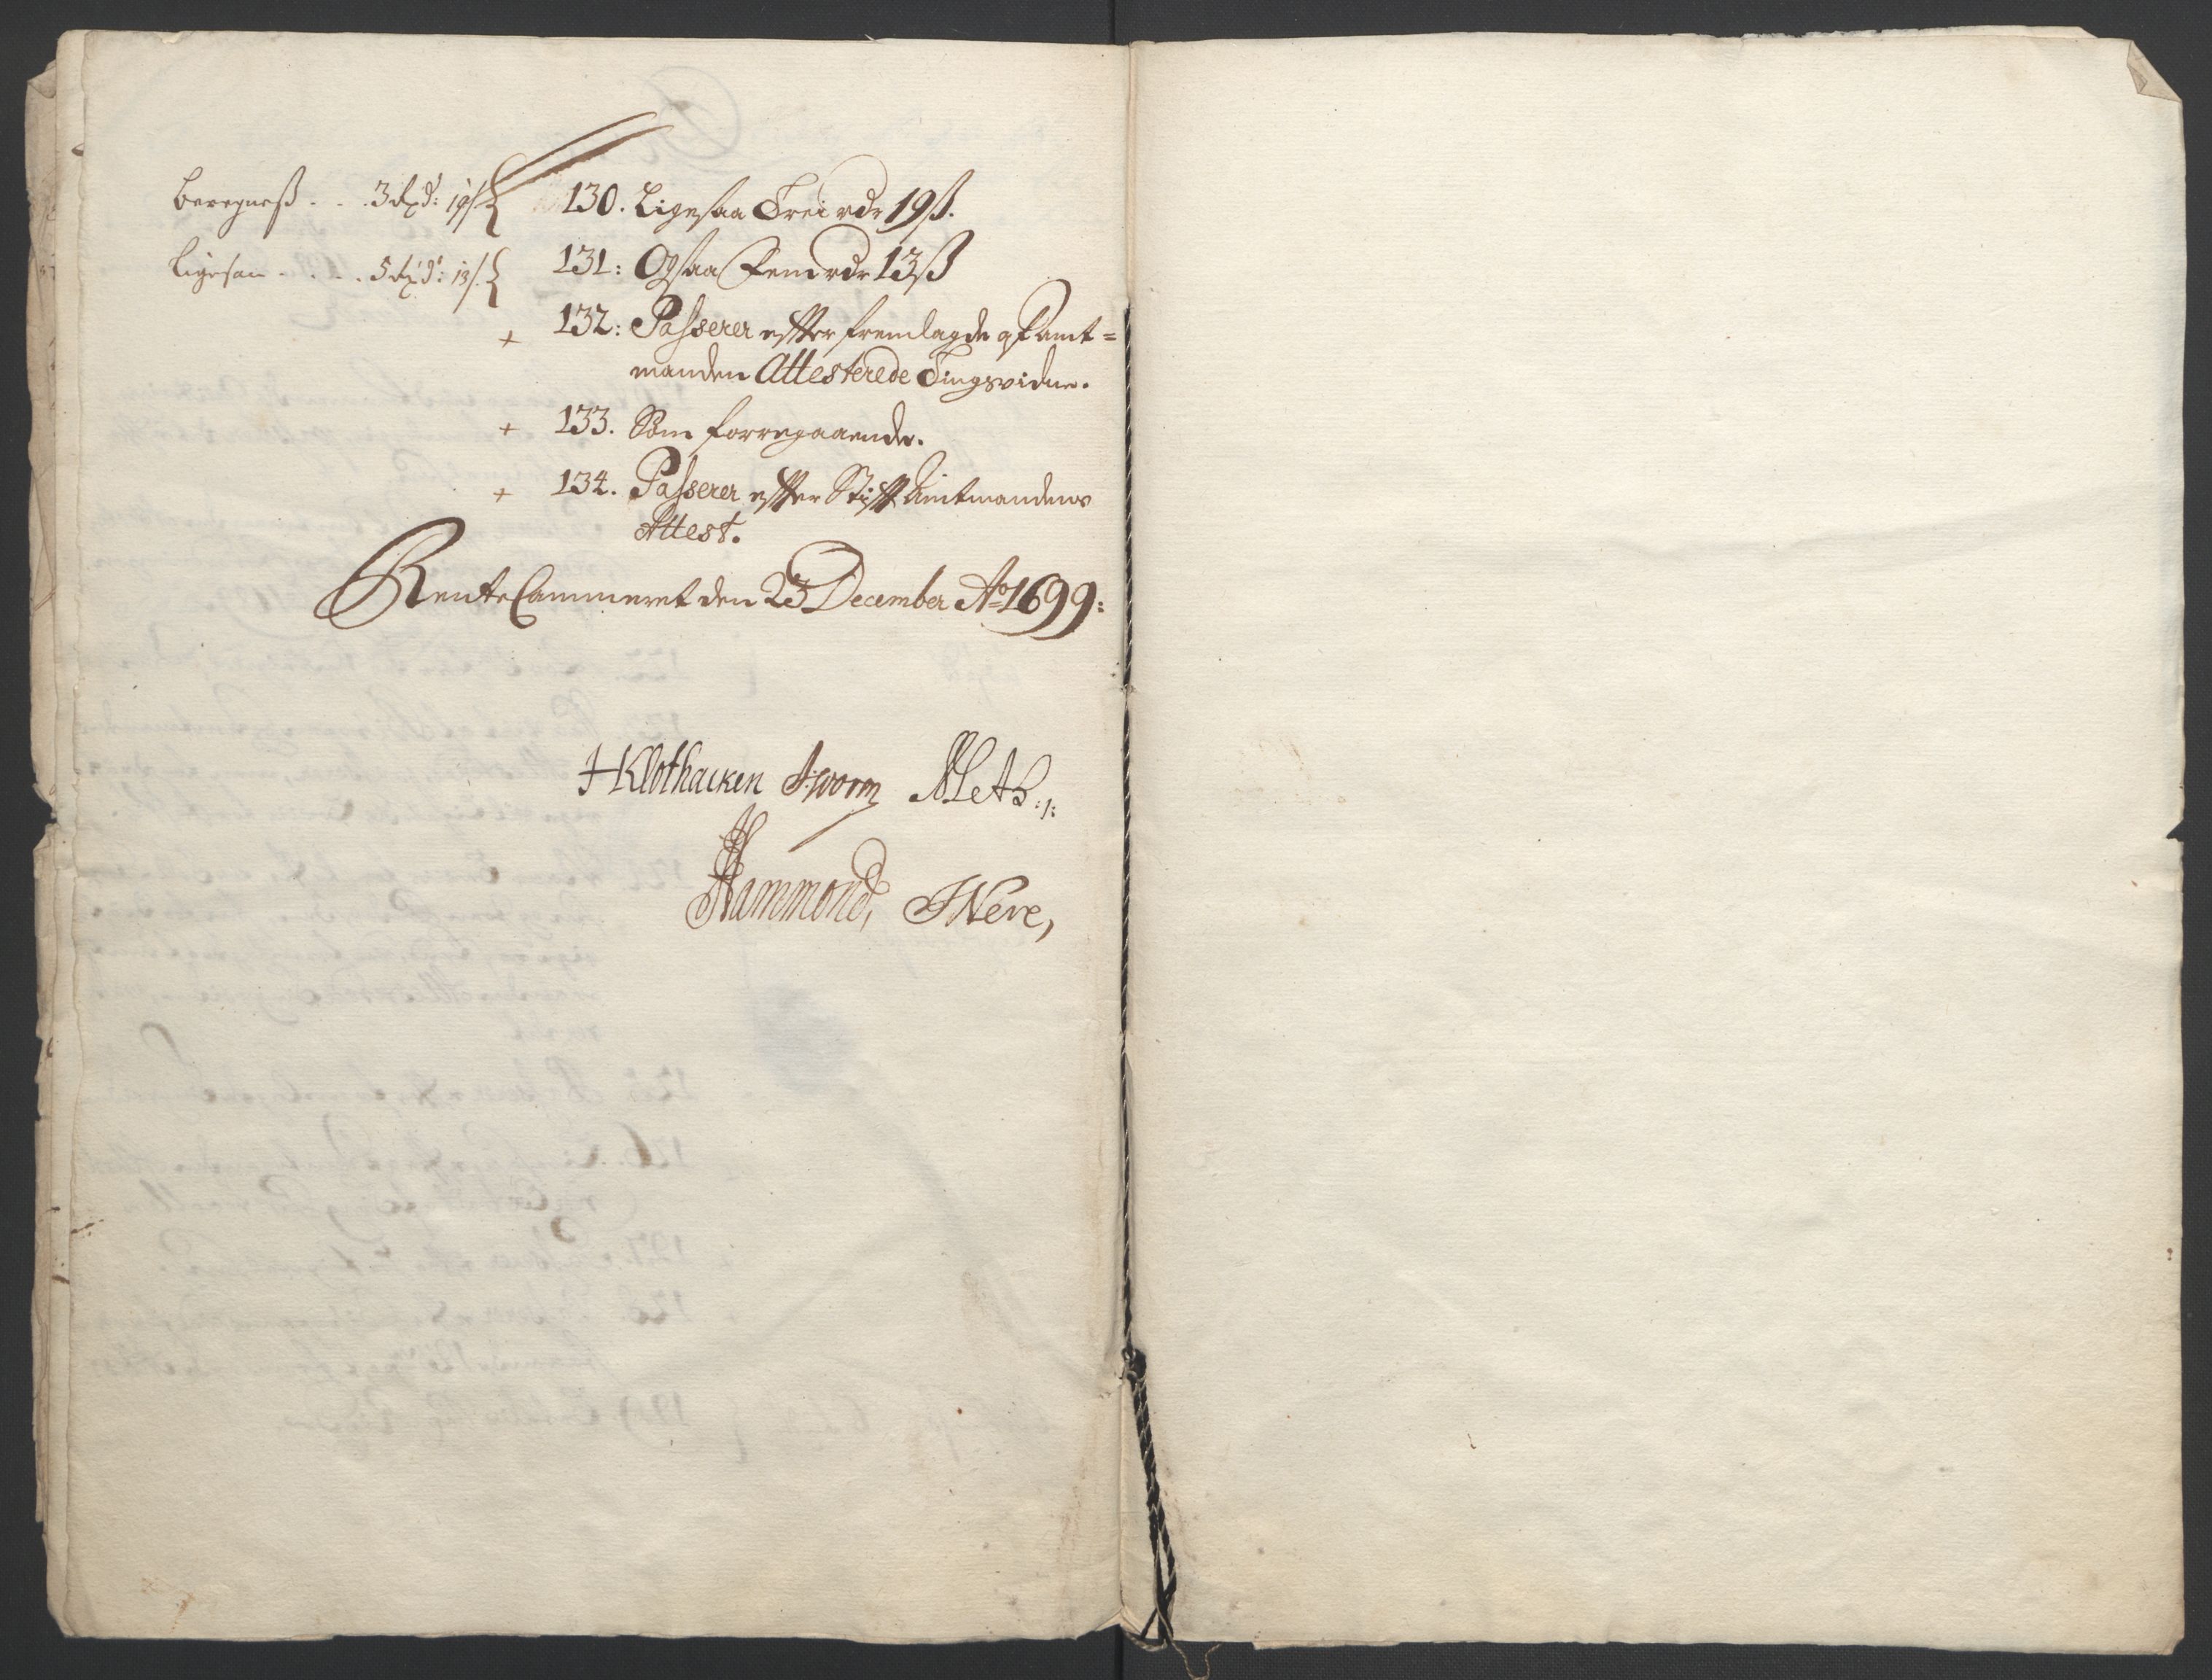 Beregneß . . . 3 rdr: 19ß
130. Ligesaa Trei rdr 19ß.
Ligesaa . . . . 5 rdr: 13ß
131: Ogsaa Fem rdr 13ß
+ 132: Passerer effter fremlagde af amt=
manden Attesterede Tingsvidne.
+ 133. Som forregaaende.
+ 134. Passerer effter Stifft Amtmandens
Attest.
Rente Cammeret den 23 December Ao 1699:
HKlothacken Jworm
Hammond,